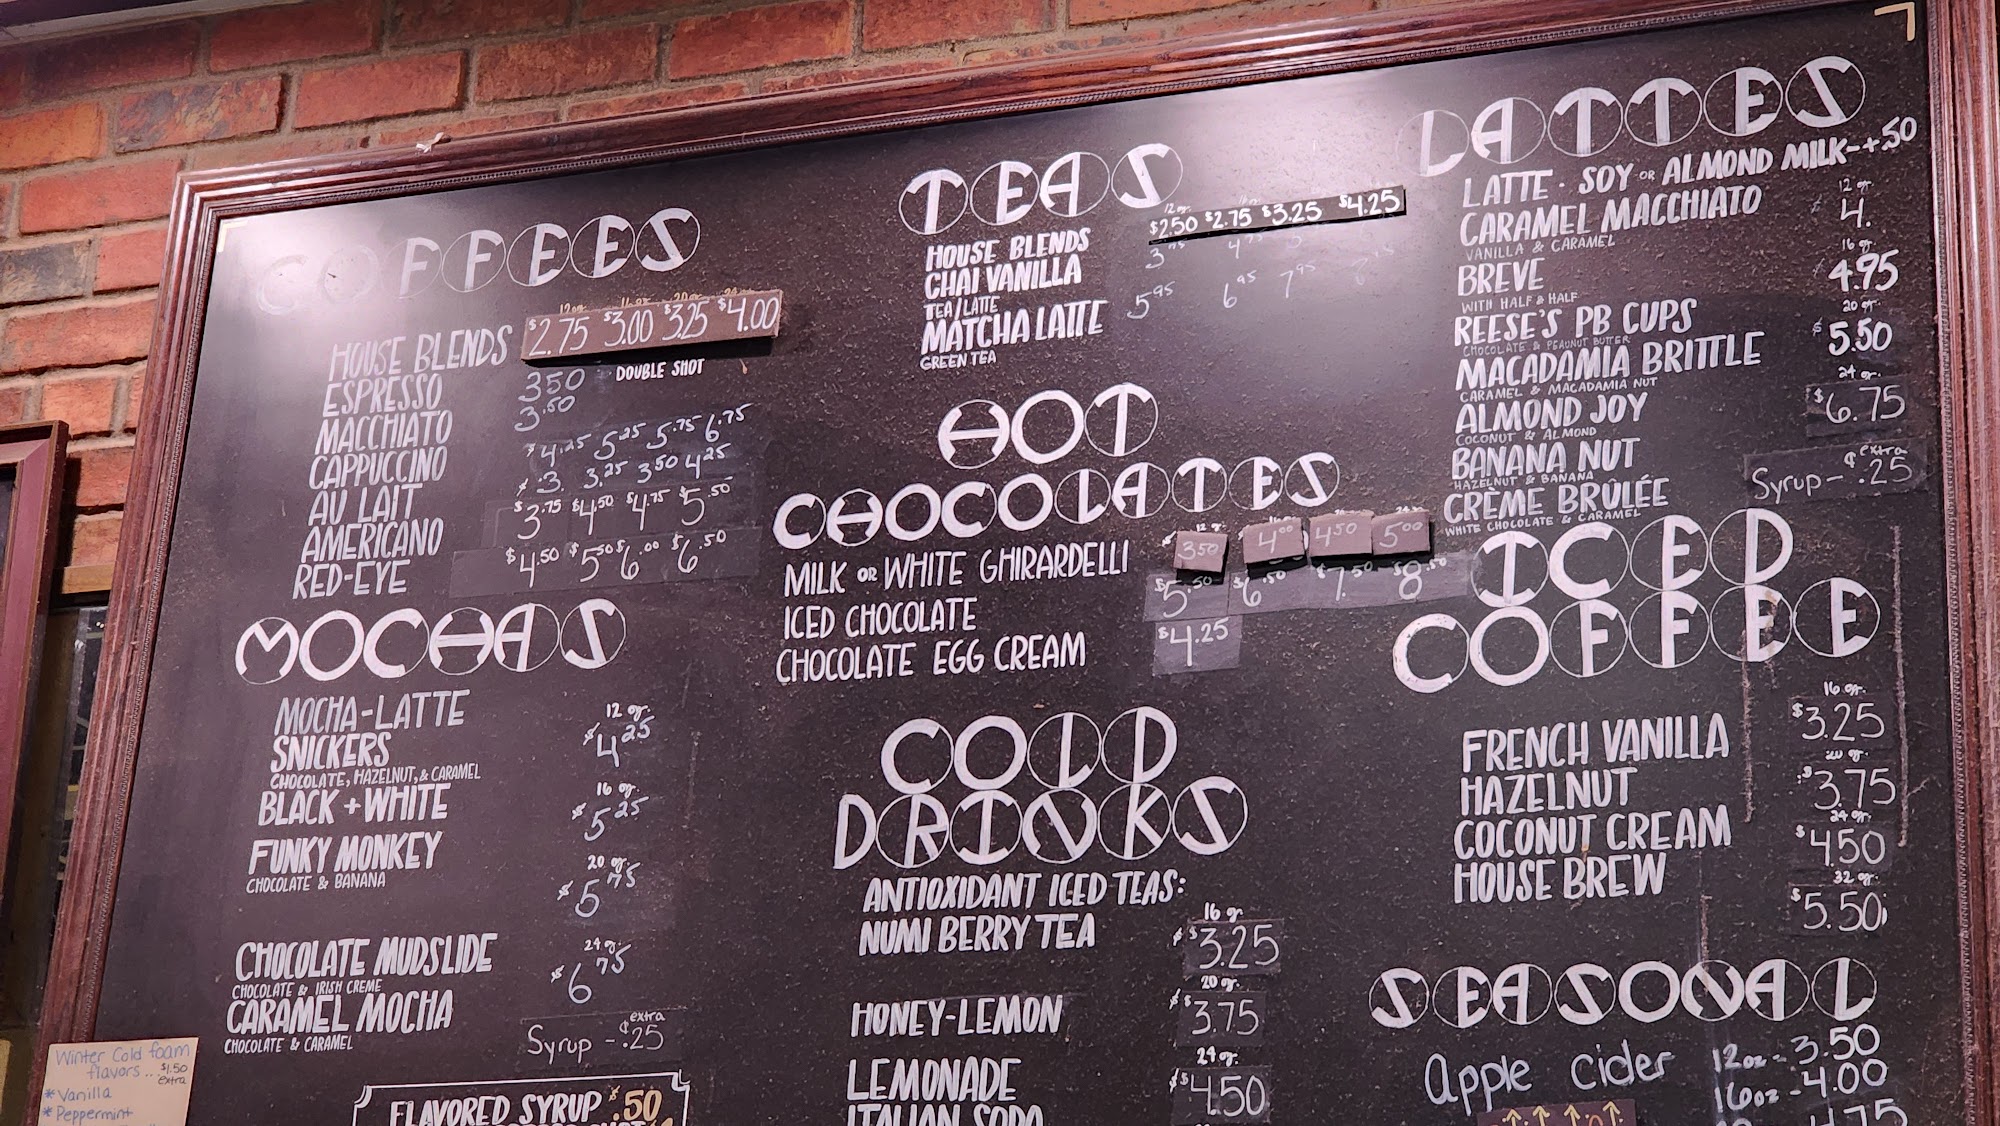 COFFEES
12oz. 16oz. 20oz. 24oz.
HOUSE BLENDS $2.75 $3.00 $3.25 $4.00
ESPRESSO 3.50 DOUBLE SHOT
MACCHIATO 3.50
CAPPUCCINO $4.25 5.25 5.75 6.75
AU LAIT $3 3.25 3.50 4.25
AMERICANO $3.75 $4.50 $4.75 $5.50
RED-EYE $4.50 $5.50 $6.00 $6.50
MOCHAS
MOCHA-LATTE 12 oz.
SNICKERS $4.25
CHOCOLATE, HAZELNUT, & CARAMEL
BLACK + WHITE 16 oz.
$5.25
FUNKY MONKEY
CHOCOLATE & BANANA 20 oz.
$5.75
CHOCOLATE MUDSLIDE 24oz.
CHOCOLATE & IRISH CREME $6.75
CARAMEL MOCHA
CHOCOLATE & CARAMEL
Syrup - ¢.25 extra
FLAVORED SYRUP $.50
Winter Cold foam
flavors... $1.50
extra
* Vanilla
* Peppermint
TEAS
12oz.
HOUSE BLENDS $2.50 $2.75 $3.25 $4.25
CHAI VANILLA
TEA/LATTE
MATCHA LATTE 5.95 6.95 7.95
GREEN TEA
HOT
CHOCOLATES
12 oz.
MILK OR WHITE GHIRARDELLI 3.50 4.00 4.50 5.00
ICED CHOCOLATE $5.50 $6.50 $7.50 $8.50
CHOCOLATE EGG CREAM $4.25
COLD
DRINKS
ANTIOXIDANT ICED TEAS:
NUMI BERRY TEA 16 oz.
$3.25
HONEY-LEMON 20 oz.
$3.75
LEMONADE 24 oz.
$4.50
ITALIAN SODA
LATTES
LATTE · SOY OR ALMOND MILK-+.50
CARAMEL MACCHIATO 12 oz.
VANILLA & CARAMEL 4.
BREVE 16 oz.
WITH HALF & HALF 4.95
REESE'S PB CUPS 20 oz.
CHOCOLATE & PEAUNUT BUTTER $5.50
MACADAMIA BRITTLE
CARAMEL & MACADAMIA NUT 24 oz.
ALMOND JOY $6.75
COCONUT & ALMOND
BANANA NUT
HAZELNUT & BANANA
CRÈME BRÛLÉE Syrup - ¢.25 extra
WHITE CHOCOLATE & CARAMEL
ICED
COFFEE
16 oz.
FRENCH VANILLA $3.25
20 oz.
HAZELNUT $3.75
24 oz.
COCONUT CREAM $4.50
HOUSE BREW 32 oz.
$5.50
SEASONAL
Apple cider 12oz - 3.50
16oz - 4.00
4.75